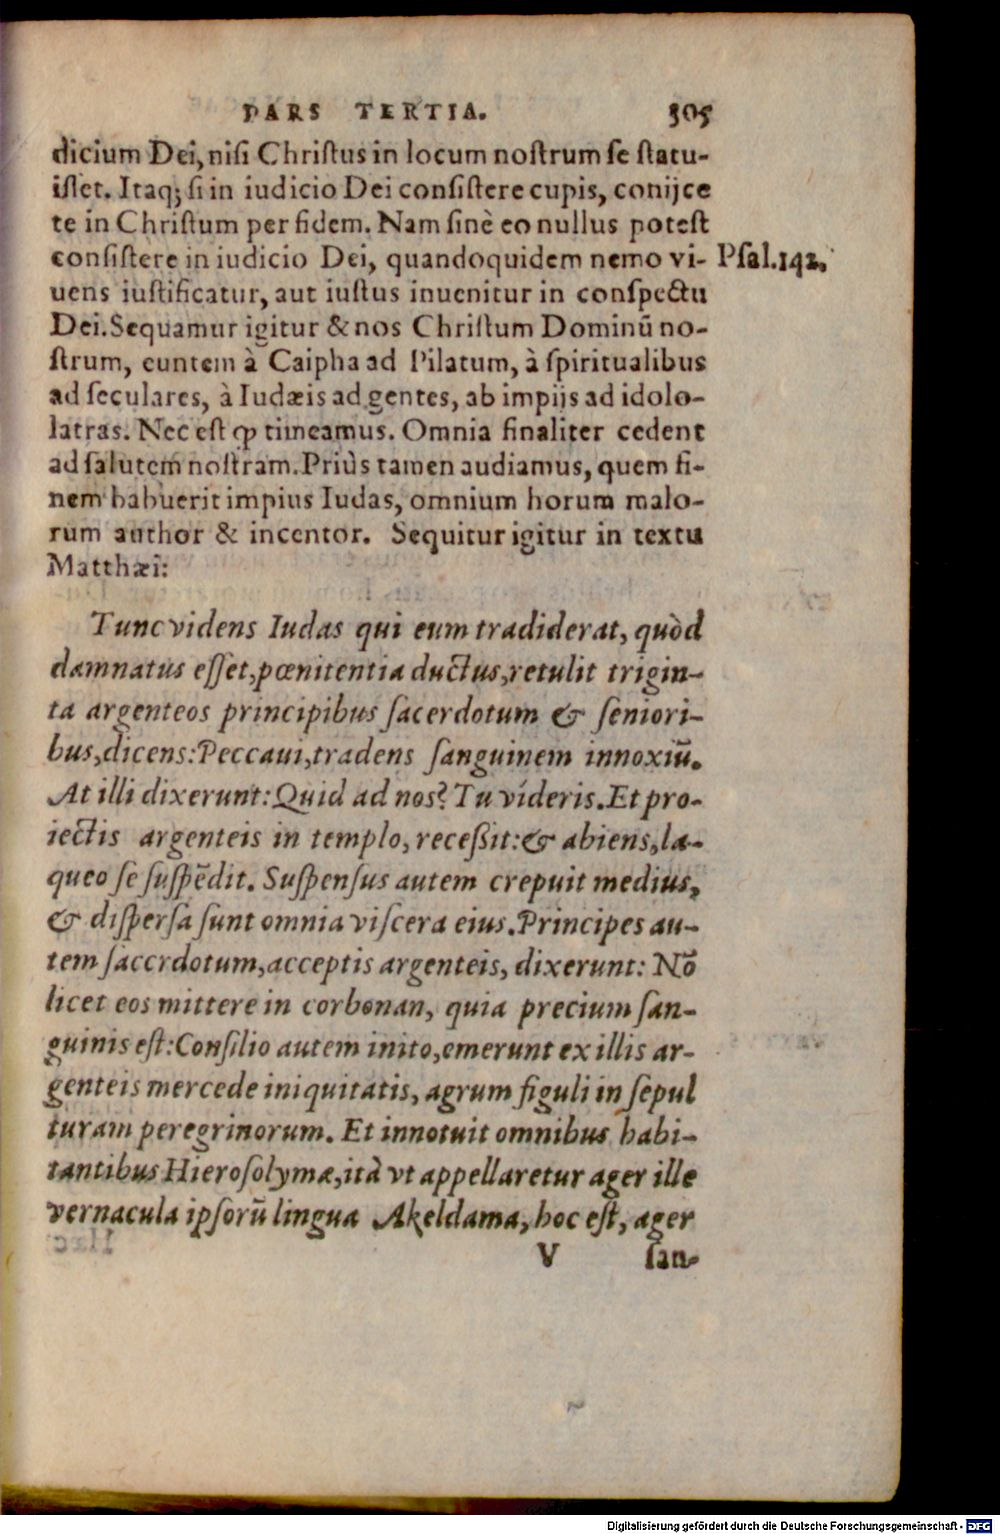 PARS TERTIA. 305
dicium Dei, nisi Christus in locum nostrum se statu-
isset. Itaq; si in iudicio Dei consistere cupis, conijce
te in Christum per fidem. Nam sinè eo nullus potest
consistere in iudicio Dei, quandoquidem nemo vi- Psal.142.
uens iustificatur, aut iustus inuenitur in conspectu
Dei. Sequamur igitur & nos Christum Dominū no-
strum, euntem à Caipha ad Pilatum, à spiritualibus
ad seculares, à Iudæis ad gentes, ab impijs ad idolo-
latras. Nec est ꝙ timeamus. Omnia finaliter cedent
ad salutem nostram. Priùs tamen audiamus, quem fi-
nem habuerit impius Iudas, omnium horum malo-
rum author & incentor. Sequitur igitur in textu
Matthæi:
Tunc videns Iudas qui eum tradiderat, quòd
damnatus esset, pœnitentia ductus, retulit trigin-
ta argenteos principibus sacerdotum & seniori-
bus, dicens: Peccaui, tradens sanguinem innoxiū.
At illi dixerunt: Quid ad nos? Tu víderis. Et pro-
iectis argenteis in templo, recessit: & abiens, la-
queo se suspēdit. Suspensus autem crepuit medius,
& dispersa sunt omnia viscera eius. Principes au-
tem saccrdotum, acceptis argenteis, dixerunt: Nō
licet eos mittere in corbonan, quia precium san-
guinis est: Consilio autem inito, emerunt ex illis ar-
genteis mercede iniquitatis, agrum figuli in sepul
turam peregrinorum. Et innotuit omnibus habi-
tantibus Hierosolymæ, ità vt appellaretur ager ille
vernacula ipsorū lingua Akeldama, hoc est, ager
V san-
Digitalisierung gefördert durch die Deutsche Forschungsgemeinschaft - DFG